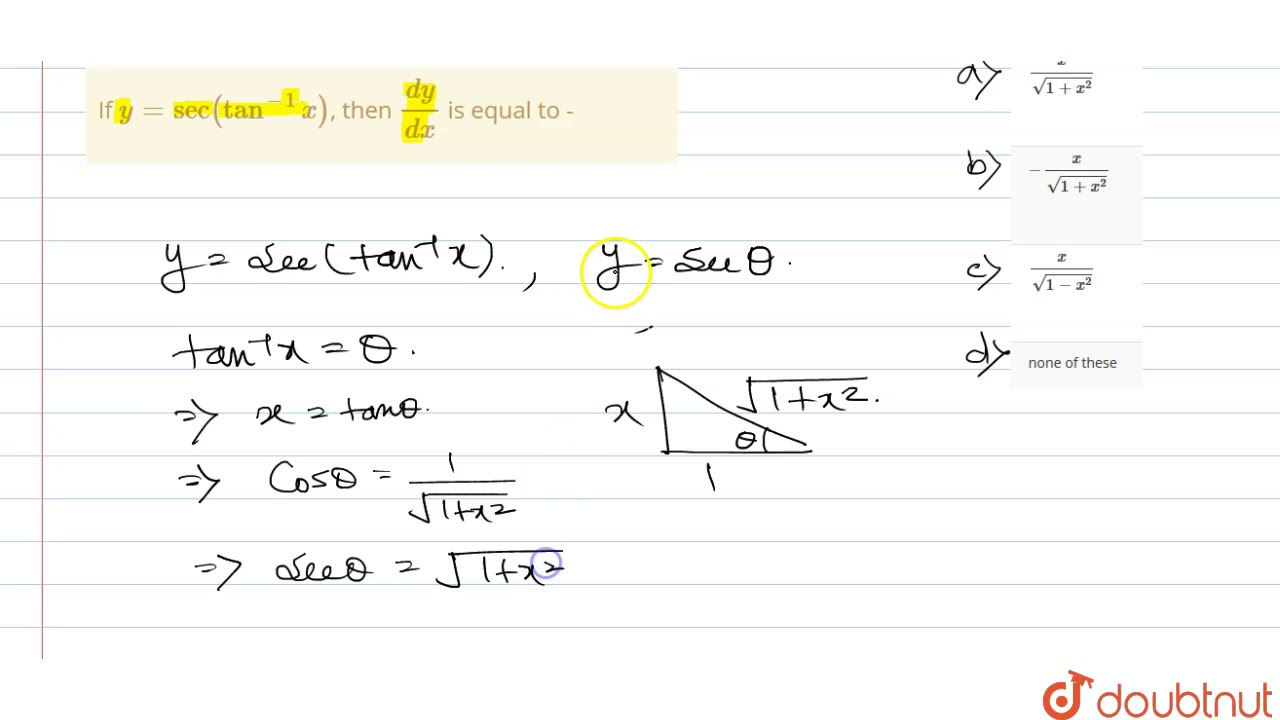 If y = sec(tan⁻¹x), then dy/dx is equal to -
a) x/√(1 + x²)
b) -x/√(1 + x²)
c) x/√(1 - x²)
d) none of these
y = sec(tan⁻¹x). , y = secθ.
tan⁻¹x = θ.
⇒ x = tanθ.
x √(1+x²). θ 1
⇒ Cosθ = 1/√(1+x²)
⇒ secθ = √(1+x²)
doubtnut